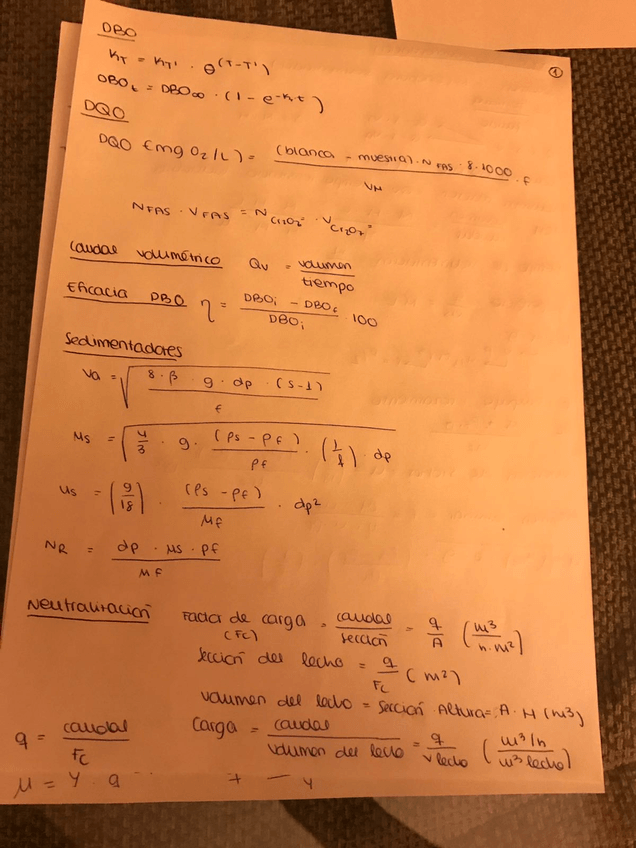 DBO
①
K_T = K_T' · θ^(T-T')
DBO_t = DBO_∞ · (1 - e^-K·t)
DQO
DQO (mg O2/L) = (blanca - muestra) · N_FAS · 8 · 1000 / V_M · f
N_FAS · V_FAS = N_Cr2O7= · V_Cr2O7=
Caudal volumétrico Qv = volumen / tiempo
Eficacia DBO η = DBO_i - DBO_f / DBO_i · 100
Sedimentadores
Va = √(8 · β · g · dp · (s-1) / f)
μs = √(4/3 · g · (ρs - ρf) / ρf · (1/f) · dp)
us = (g/18) · (ρs - ρf) / μf · dp²
NR = dp · μs · ρf / μf
Neutralización Factor de carga = caudal / sección = q/A (m³ / h·m²)
(FC)
Sección del lecho = q / Fc (m²)
Volumen del lecho = Sección Altura = A · H (m³)
q = caudal / Fc
Carga = caudal / volumen del lecho = q / v lecho (m³/h / m³ lecho)
μ = Y · q